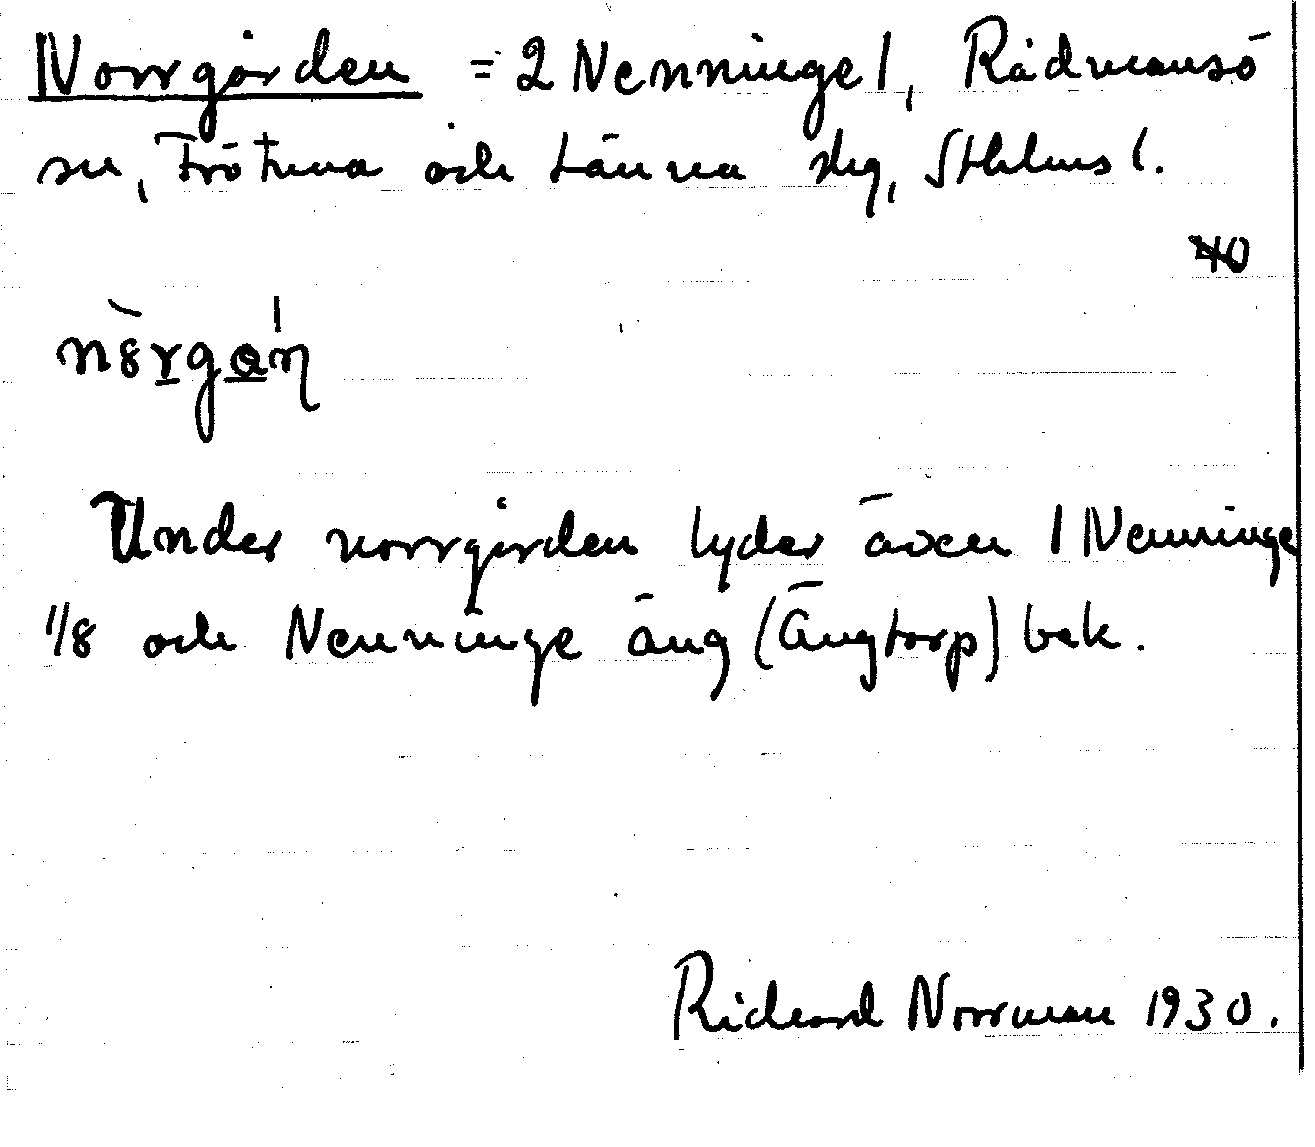 Norrgården = 2 Nenninge 1, Rådmansö
sn, Frötuna och Länna skg, Sthlms l.
40
Under norrgården lyder även 1 Nenninge
1/8 och Nenninge äng (Ängtorp) bek.
Rickard Norrman 1930.